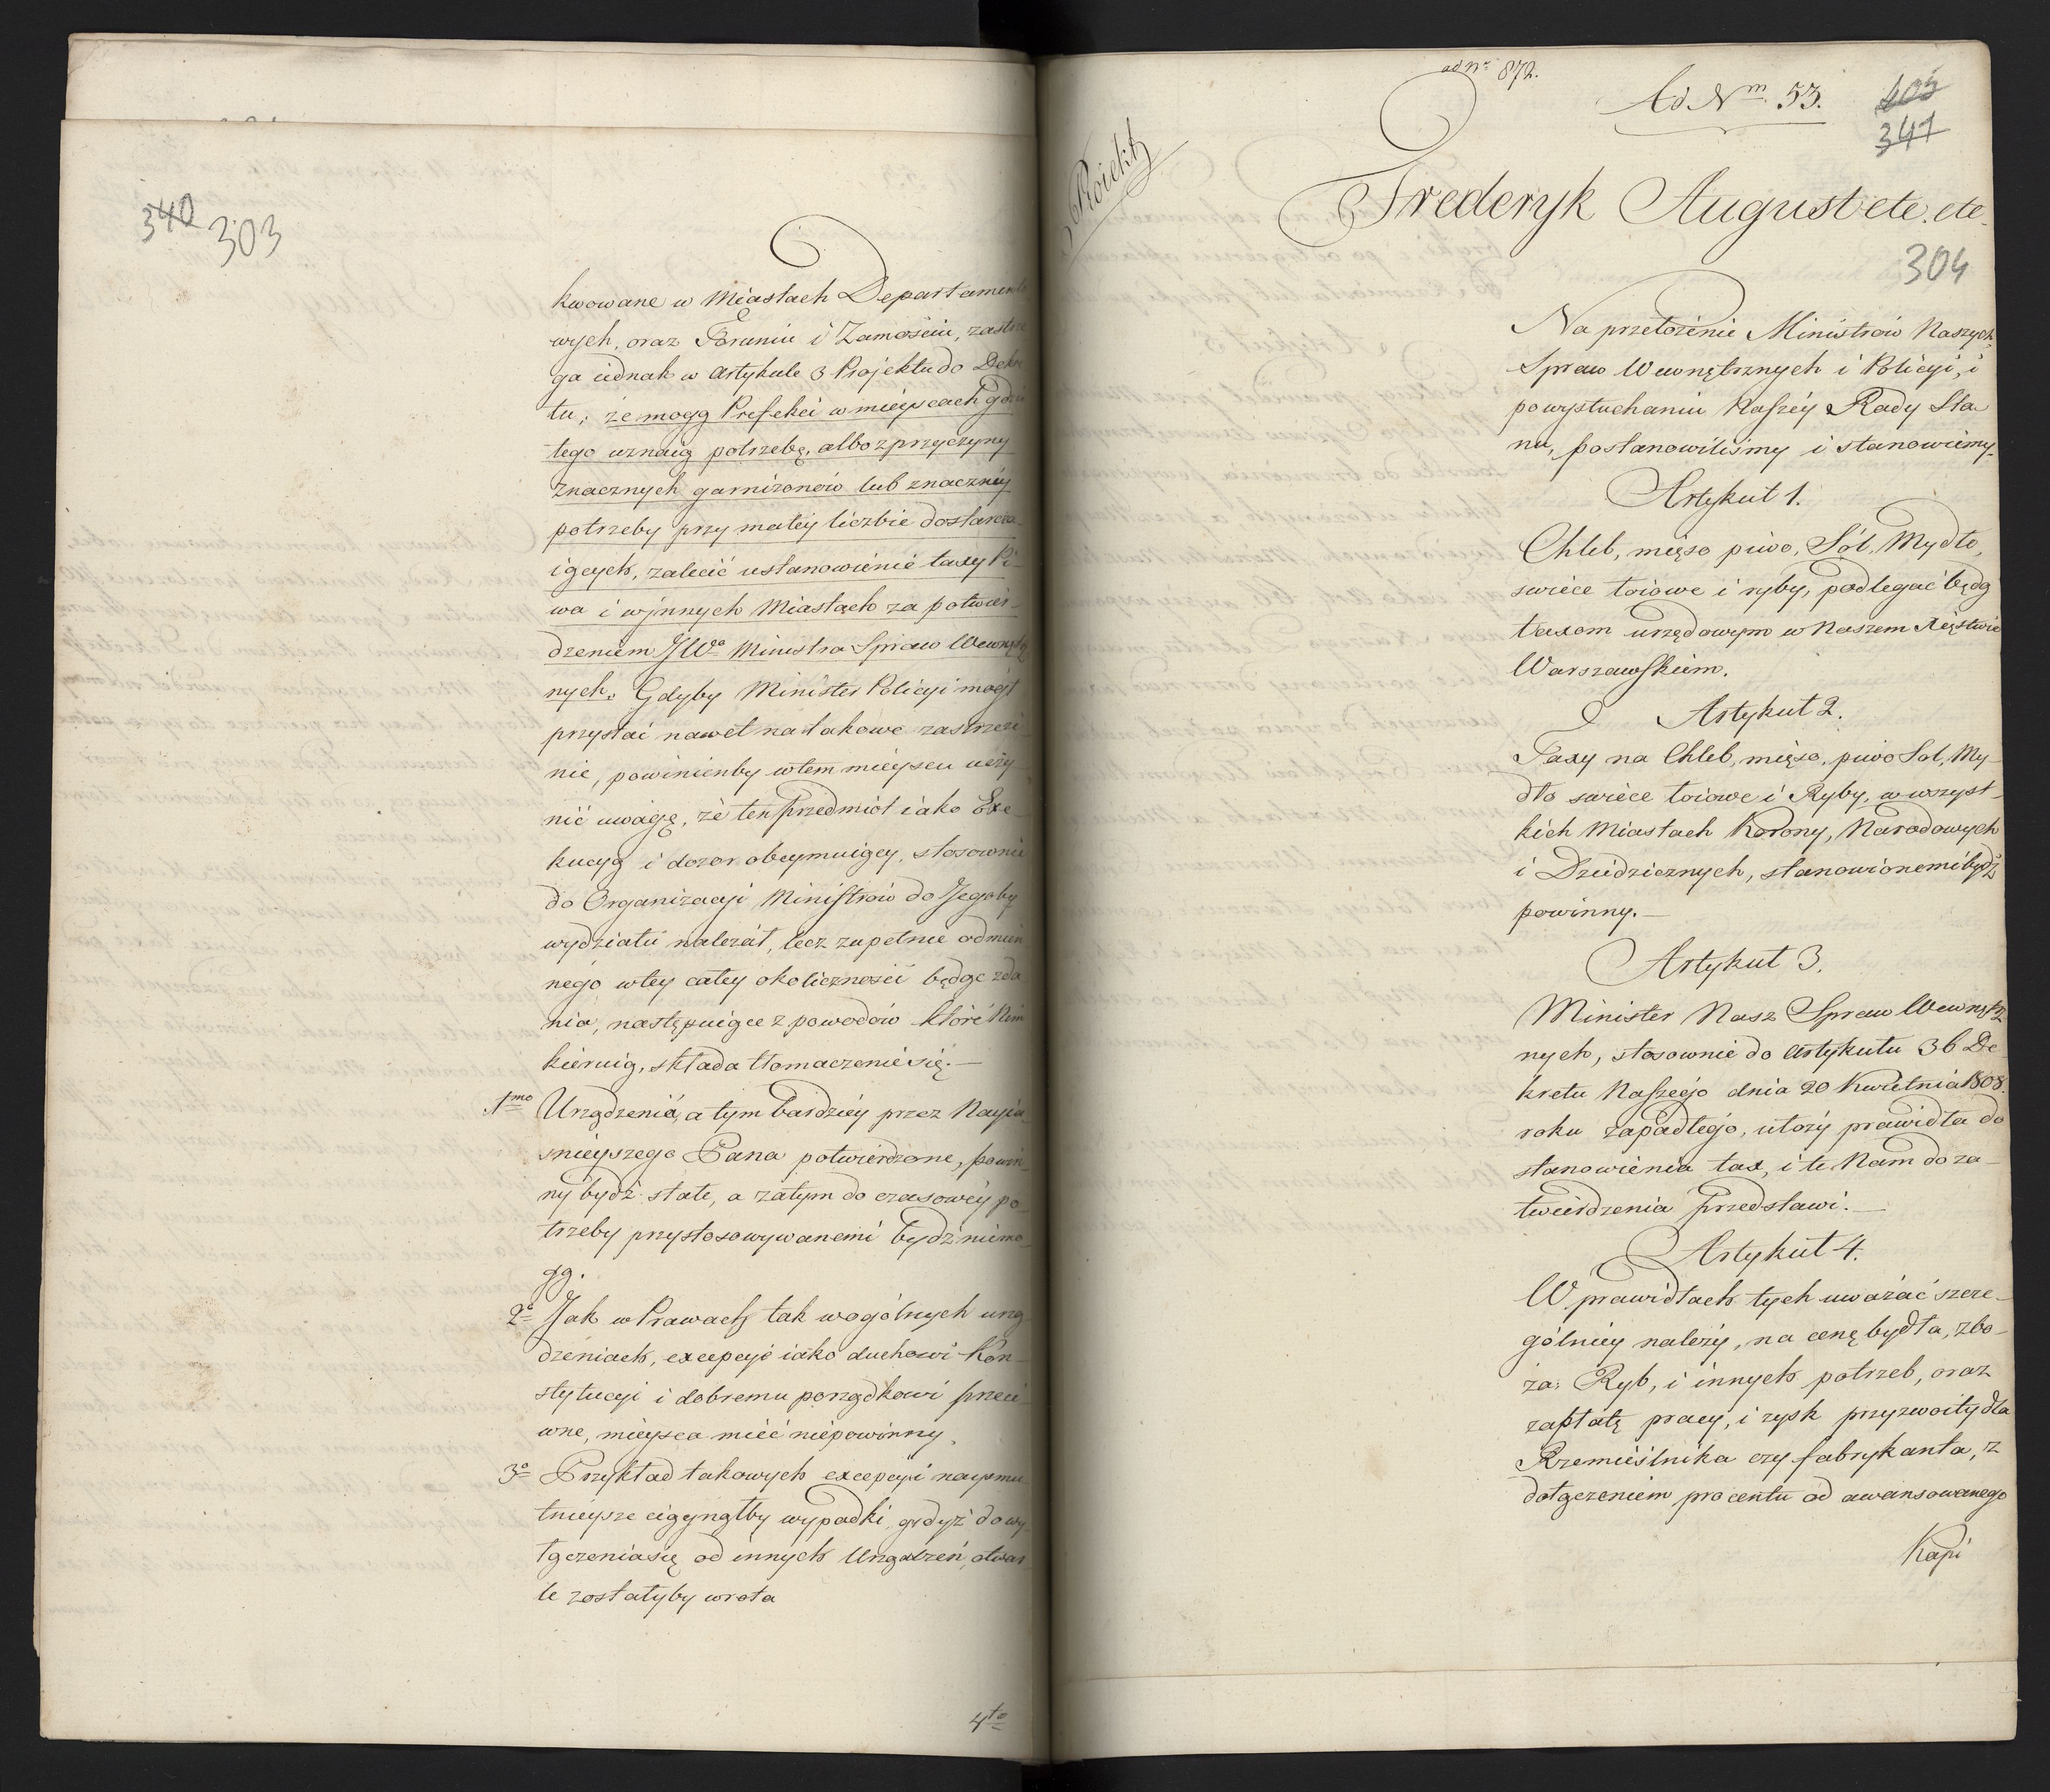 340
303
kwowane w Miastach Departamento
wych, oraz Toruniu i Zamościu, zastrze
ga iednak w Artykule 3 Projektu do Dekre
tu, że mogą Prefekci w mieyscach gdzie
tego uznaią potrzebę, albo z przyczyny
znacznych garnizonów lub znaczney
potrzeby przy małey liczbie dostarcza-
iących, zalecić ustanowienie taxy Pi-
wa i w jnnych Miastach za potwier-
dzeniem JWo Ministra Spraw Wewnętrz
nych. Gdyby Minister Policyi mógł
przystać nawet na takowe zastrzeże
nie, powinienby wtem mieyscu uczy-
nić uwagę, że ten przedmiot iako Exe-
kucyą i dozor obeymuiący, stosownie
do Organizacyi Ministrów do Jegoby
wydziału należał, lecz zupełnie odmien
nego wtey całey okoliczności będąc zda
nia, następuiące z powodów które Nim
kieruią, składa tłomaczenie się.—
1mo Urządzenia, a tym bardziey przez Nayia-
śnieyszego Pana potwierdzone, powin-
ny bydź stałe, a zatym do czasowéy po-
trzeby przystosowywanemi bydź niemo-
gą.
2o Jak w Prawach tak w ogólnych urzą
dzeniach, excepcye iako duchowi Kon-
stytucyi i dobremu porządkowi przeci-
wne, mieysca mieć niepowinny.
3o Przykład takowych excepcyi naysmu-
tnieysze ciągnąłby wypadki, gdyż do wy-
łączenia się od innych Urządzeń, otwar-
te zostałyby wrota
4to
ad Nr 872.
Ad Nm 53.
403
347
Proiekt
Frederyk August etc. etc.
304
Na przełożenie Ministrów Naszych
Spraw Wewnętrznych i Policyi, i
po wysłuchaniu Naszéy Rady Sta
nu, postanowiliśmy i stanowiemy.
Artykuł 1.
Chleb, mięso piwo, Sól, Mydło,
swiece łoiowe i ryby, podlegać będą
taxom urzędowym w Naszem Xięstwie
Warszawskiem.
Artykuł 2.
Taxy na Chleb, mięso, piwo Sol, My-
dło swiece łoiowe i Ryby, w wszyst-
kich Miastach Korony, Narodowych
i Dziedzicznych, stanowionemi bydź
powinny.—
Artykuł 3.
Minister Nasz Spraw Wewnętrz
nych, stosownie do Artykułu 36 De-
kretu Naszego dnia 20 Kwietnia 1808.
roku zapadłego, ułoży prawidła do
stanowienia tax, i te Nam do za-
twierdzenia przedstawi.—
Artykuł 4.
W prawidłach tych uważać szcze-
gólniey należy, na cenę bydła, zbo-
ża, Ryb, i innych potrzeb, oraz
zapłatę pracy, i zysk przyzwoity dla
Rzemieślnika czy fabrykanta, z
dołączeniem procentu od awansowanego
Kapi